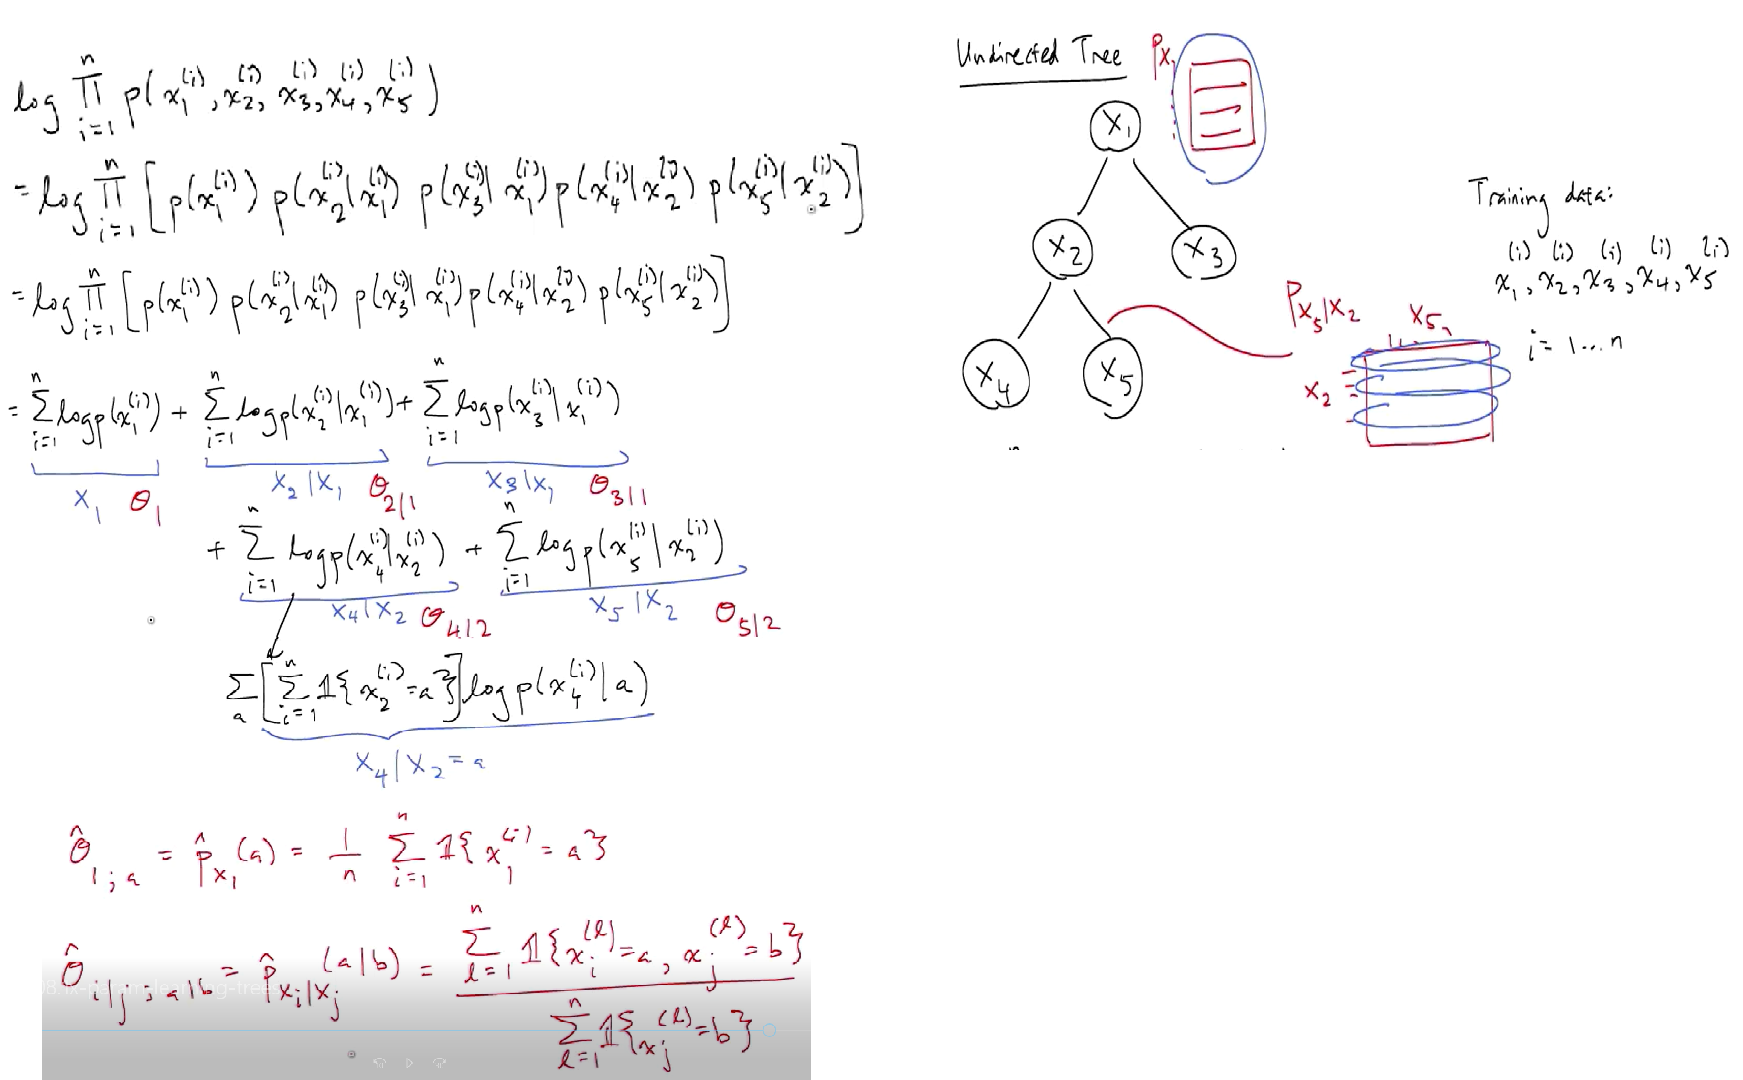 log ∏_{i=1}^{n} p(x_1^{(i)}, x_2^{(i)}, x_3^{(i)}, x_4^{(i)}, x_5^{(i)})
= log ∏_{i=1}^{n} [p(x_1^{(i)}) p(x_2^{(i)}|x_1^{(i)}) p(x_3^{(i)}|x_1^{(i)}) p(x_4^{(i)}|x_2^{(i)}) p(x_5^{(i)}|x_2^{(i)})]
= log ∏_{i=1}^{n} [p(x_1^{(i)}) p(x_2^{(i)}|x_1^{(i)}) p(x_3^{(i)}|x_1^{(i)}) p(x_4^{(i)}|x_2^{(i)}) p(x_5^{(i)}|x_2^{(i)})]
= ∑_{i=1}^{n} log p(x_1^{(i)}) + ∑_{i=1}^{n} log p(x_2^{(i)}|x_1^{(i)}) + ∑_{i=1}^{n} log p(x_3^{(i)}|x_1^{(i)})
X_1 θ_1 X_2|X_1 θ_{2|1} X_3|X_1 θ_{3|1}
+ ∑_{i=1}^{n} log p(x_4^{(i)}|x_2^{(i)}) + ∑_{i=1}^{n} log p(x_5^{(i)}|x_2^{(i)})
X_4|X_2 θ_{4|2} X_5|X_2 θ_{5|2}
∑_a [∑_{i=1}^{n} 𝟙{x_2^{(i)}=a}] log p(x_4^{(i)}|a)
X_4|X_2=a
θ̂_{1;a} = p̂_{X_1}(a) = 1/n ∑_{i=1}^{n} 𝟙{x_1^{(i)} = a}
θ̂_{i|j;a|b} = p̂_{X_i|X_j}(a|b) = ∑_{l=1}^{n} 𝟙{x_i^{(l)}=a, x_j^{(l)}=b} / ∑_{l=1}^{n} 𝟙{x_j^{(l)}=b}
Undirected Tree
p_{X_1}
X_1
X_2
X_3
X_4
X_5
P_{X_5|X_2}
X_5
X_2
Training data:
x_1^{(i)}, x_2^{(i)}, x_3^{(i)}, x_4^{(i)}, x_5^{(i)}
i = 1...n